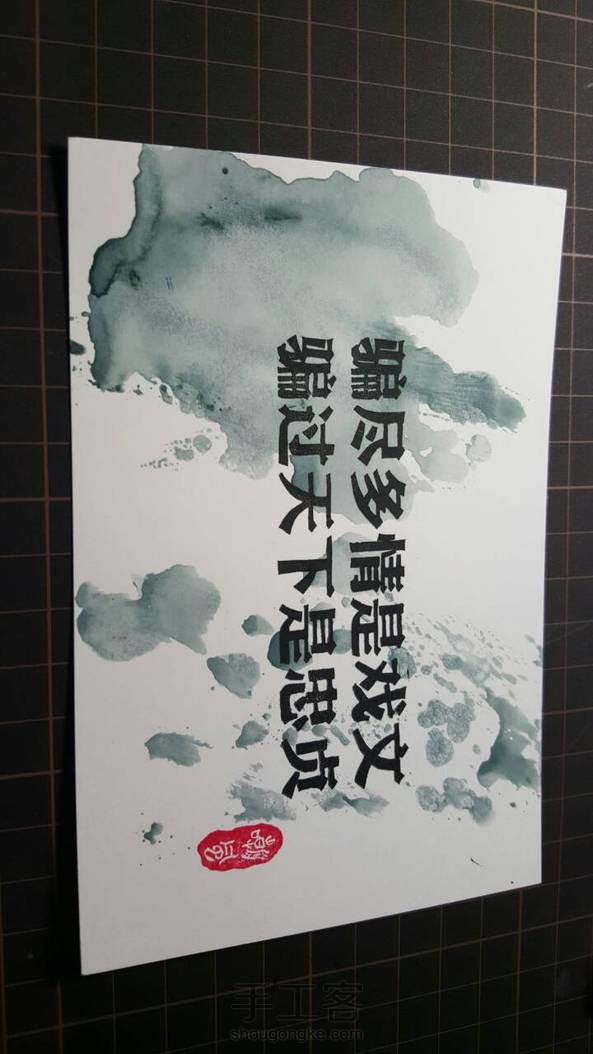 骗尽多情是戏文
骗过天下是忠贞
手工客
shougongke.com